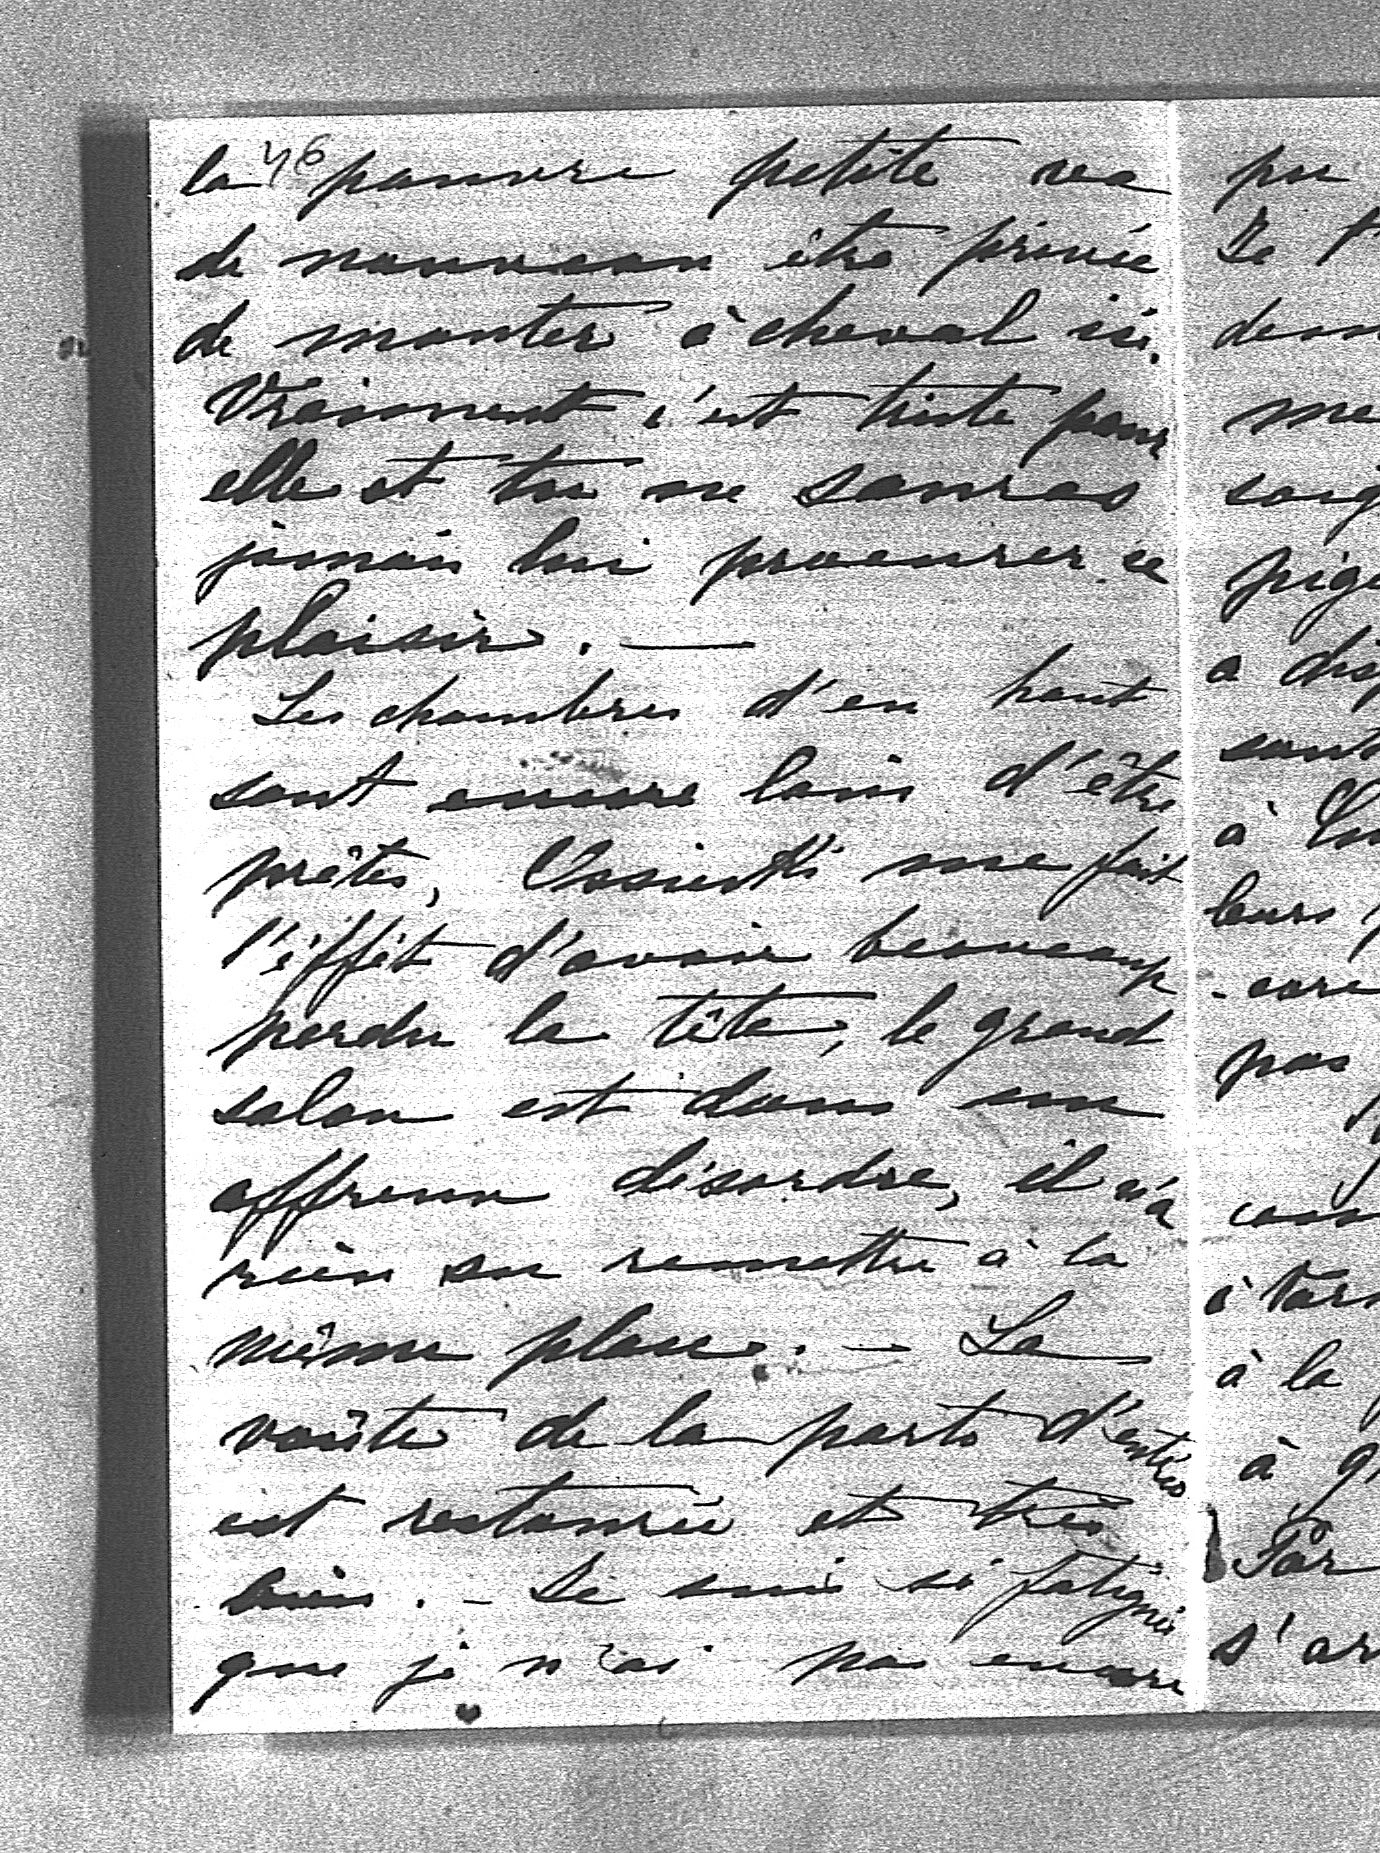 46
la pauvre petite va
de nouveau être privée
de monter à cheval ici.
Vraiment c'est triste pour
elle et tu ne sauras
jamais lui procurer ce
plaisir. —
Les chambres d'en haut
sont encore loin d'être
prêtes, me fait
l'éffèt d'avoir beaucoup
perdu la tête, le grand
salon est dans un
affreux désordre, il n'a
rien su remettre à la
même place. - La
voûte de la porte d'entrée
est restaurée et très
bien. - Je suis si fatiguée
que je n'ai pas encore
pu
Je
me
à
leurs
pas
à la
à
Par